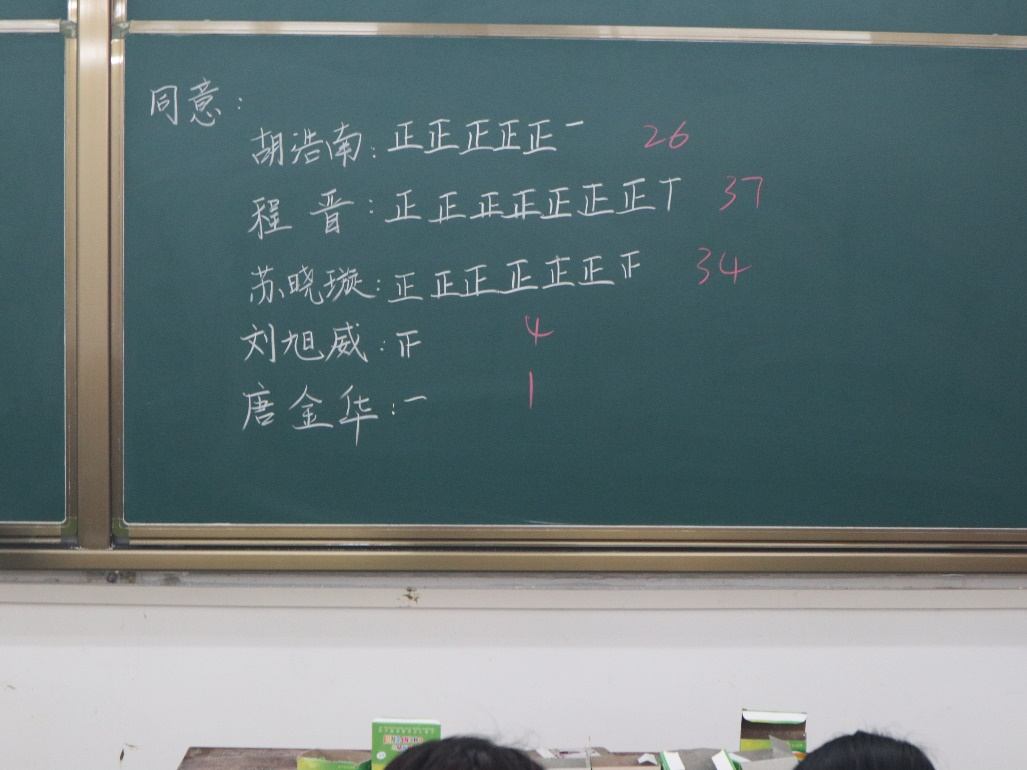 同意:
胡浩南:正正正正正一 26
程晋:正正正正正正正丅 37
苏晓璇:正正正正正正𠄟 34
刘旭威:𠄟 4
唐金华:一 1